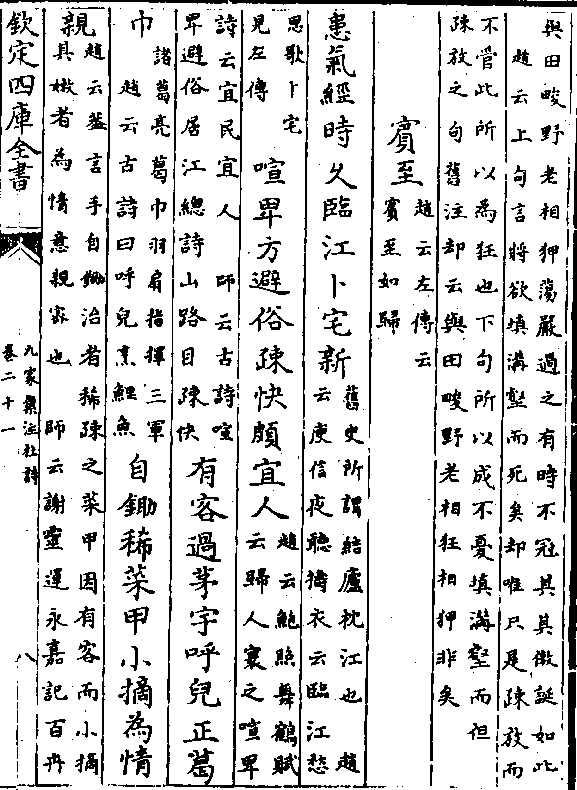 與田畯野老相狎蕩嚴過之有時不冠其傲誕如此
趙云上句言將欲填溝壑而死矣却唯只是疎放而
不管此所以為狂也下句所以成不憂填溝壑而但
疎放之句舊注却云與田畯野老相狂相狎非矣
賓至
趙云左傳云
賓至如歸
患氣經時久臨江卜宅新
舊史所謂結廬枕江也 趙
云庾信夜聽擣衣云臨江愁
思歌卜宅
見左傳
喧卑方避俗疎快頗宜人
趙云鮑照舞鶴賦
云歸人寰之喧卑
詩云宜民宜人 師云古詩喧
卑避俗居江總詩山路目疎快
有客過茅宇呼兒正葛
巾
諸葛亮葛巾羽扇指揮三軍
趙云古詩曰呼兒烹鯉魚
自鋤稀菜甲小摘為情
親
趙云蓋言手自鋤治者稀疎之菜甲因有客而小摘
其嫩者為情意親密也 師云謝靈運永嘉記百卉
欽定四庫全書
九家集注杜詩
卷二十一
八